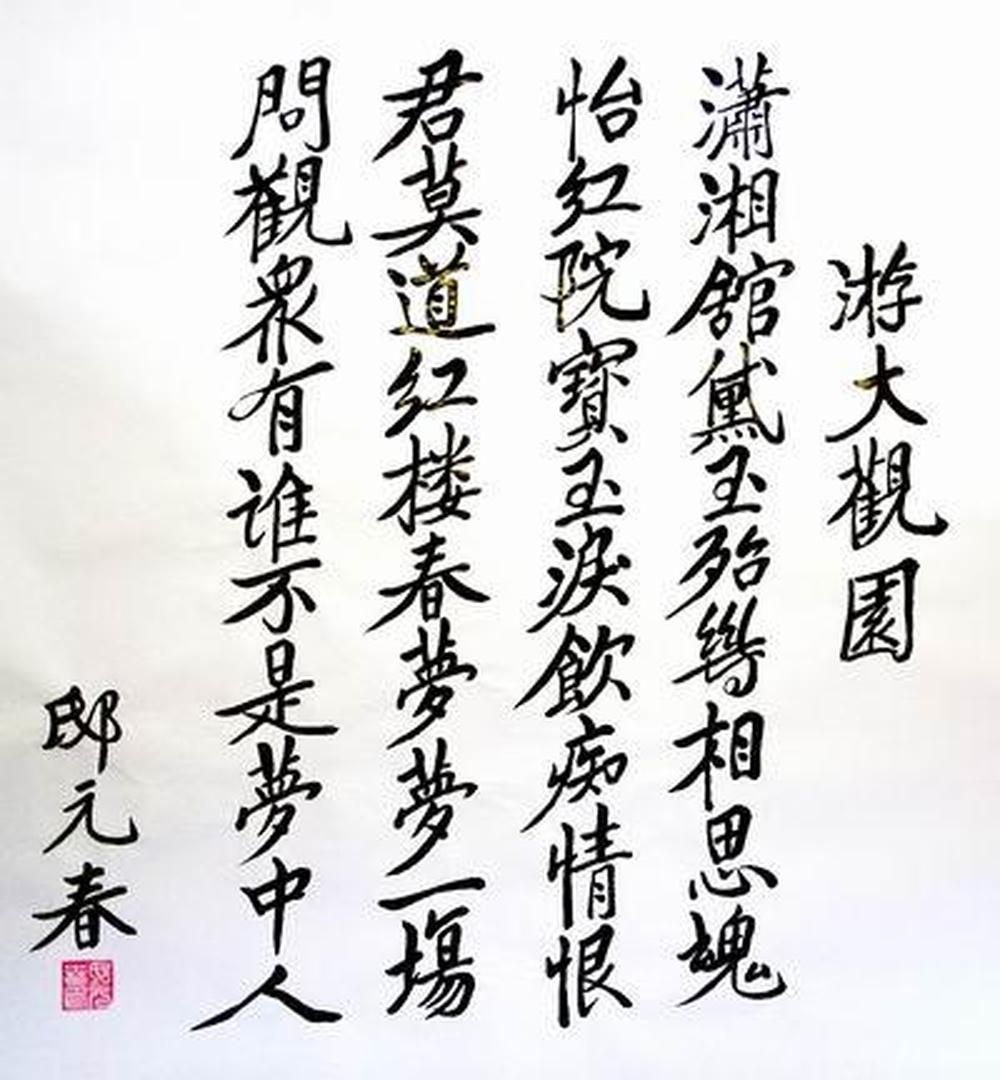 游大觀園
瀟湘舘黛玉殆相思魂
怡红院寳玉淚飲痴情恨
君莫道红楼春夢夢一場
問觀衆有谁不是夢中人
邸元春